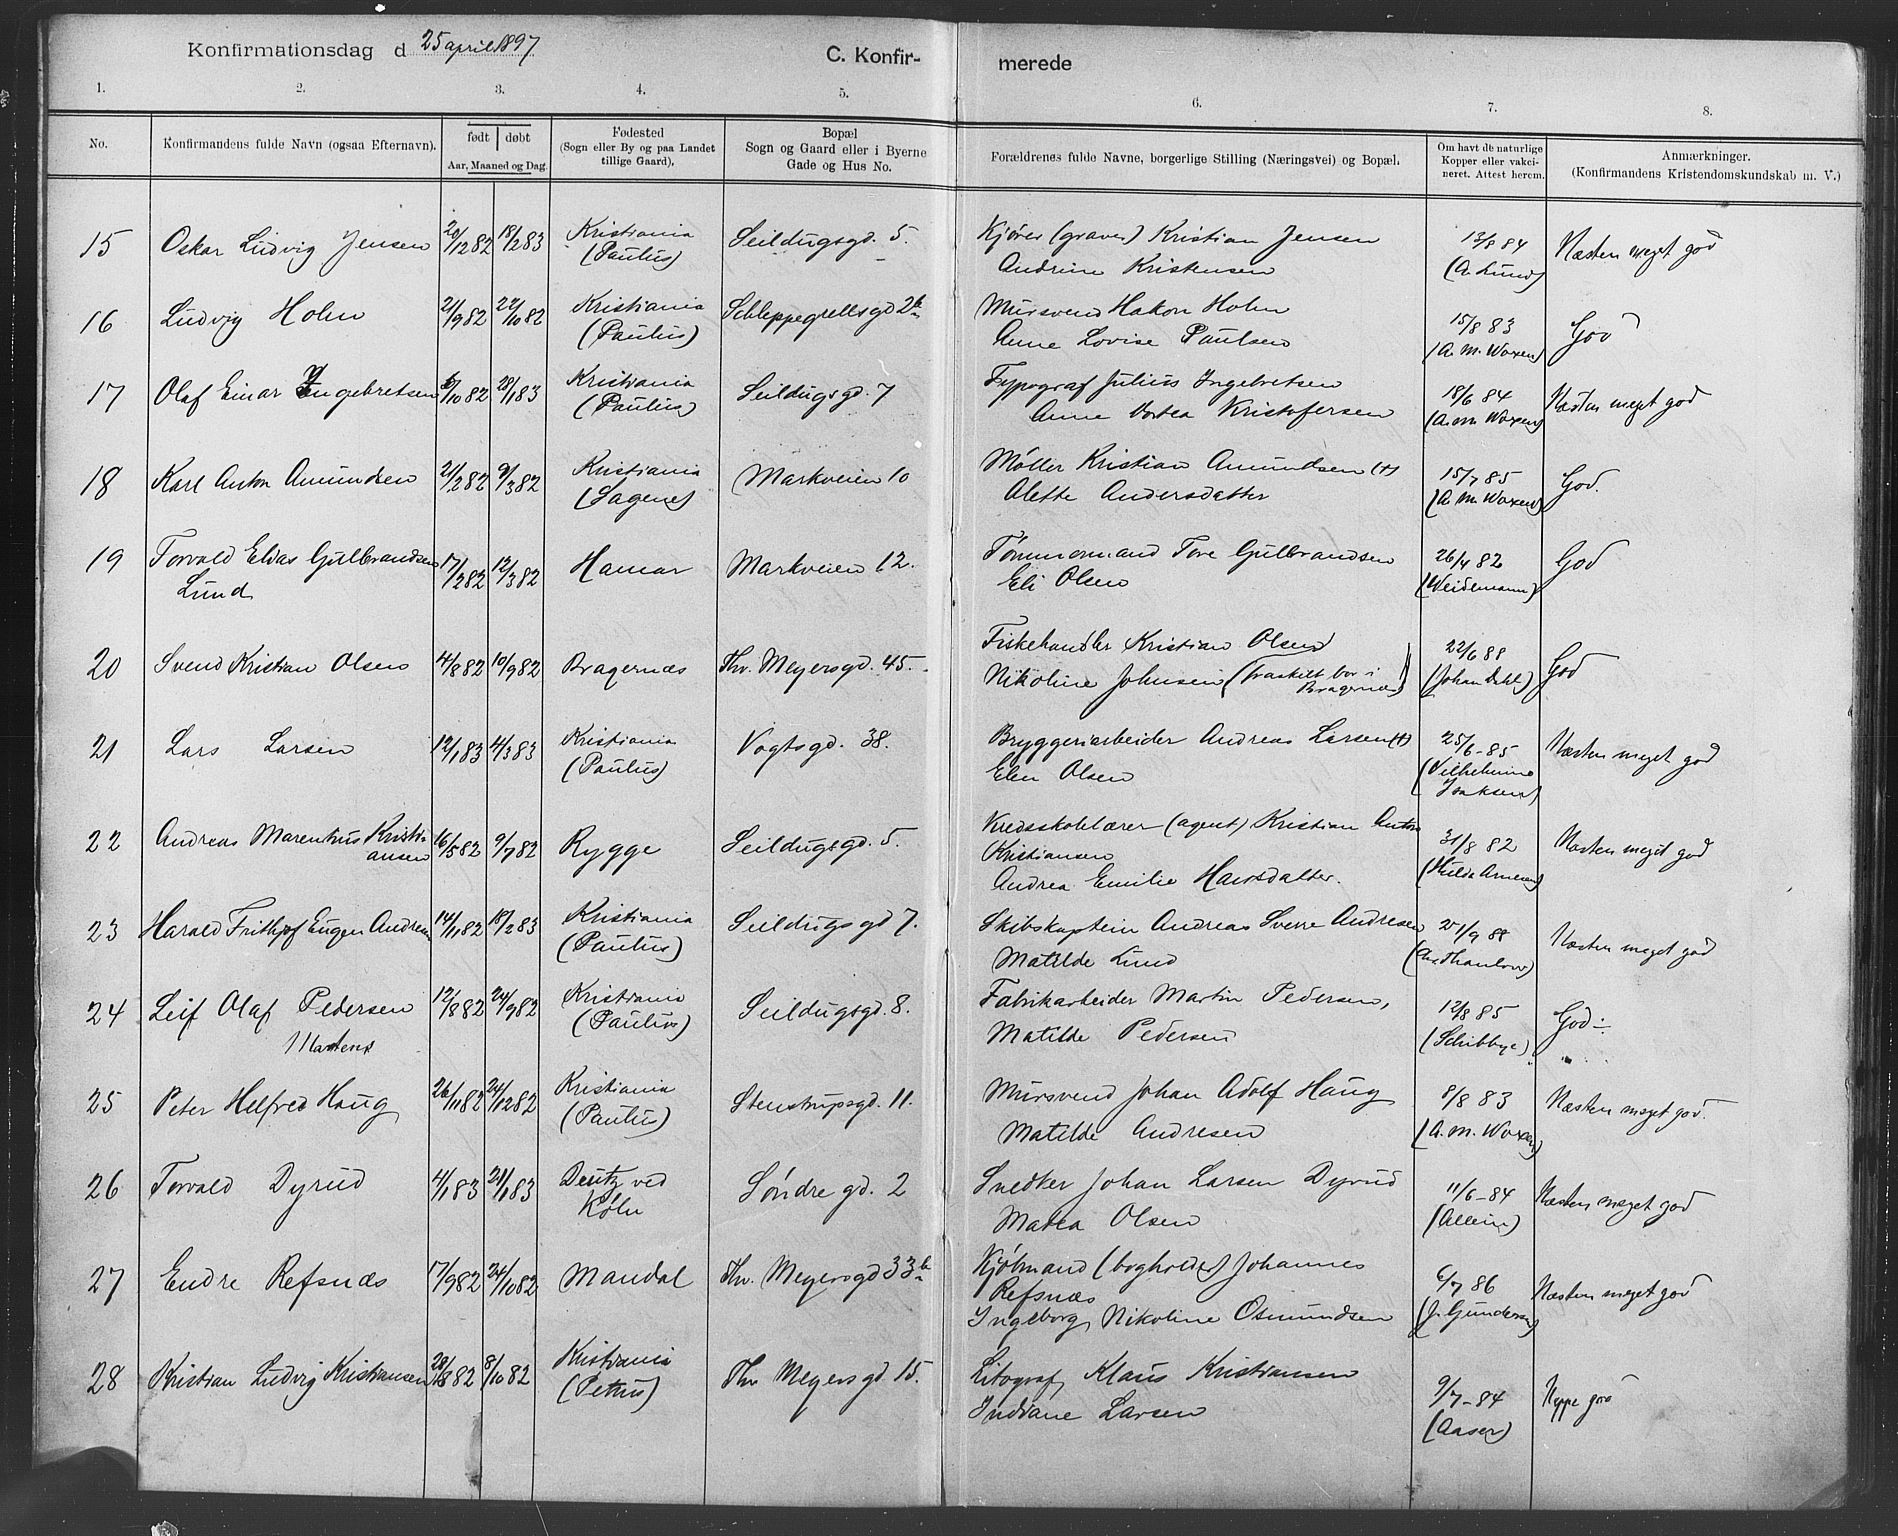 Konfirmationsdag d 25 april 1897
C. Konfir-
merede
1. 2. 3. 4. 5. 6. 7. 8.
No.
Konfirmandens fulde Navn (ogsaa Efternavn).
født døbt
Aar, Maaned og Dag.
Fødested
(Sogn eller By og paa Landet
tillige Gaard).
Bopæl
Sogn og Gaard eller i Byerne
Gade og Hus No.
Forældrenes fulde Navne, borgerlige Stilling (Næringsvei) og Bopæl.
Om havt de naturlige
Kopper eller vakci-
neret. Attest herom.
Anmærkninger.
(Konfirmandens Kristendomskundskab m. V.)
15 Oskar Ludvig Jensen 20/12 82 18/2 83 Kristiania (Paulus) Seildugsgd. 5. Kjører (graver) Kristian Jensen 13/8 84 Næsten meget god
Andrine Kristensen (A. Lund)
16 Ludvig Holm 21/9 82 22/10 82 Kristiania (Paulus) Schleppegrellsgd 2b Mursvend Hakon Holm 15/8 83 God
Anne Lovise Paulsen (A. M. Woxen)
17 Olaf Einar Ingebretsen 6/10 82 28/1 83 Kristiania (Paulus) Seildugsgd. 7 Typograf Julius Ingebretsen 18/6 84 Næsten meget god
Anne Dortea Kristofersen (A. M. Woxen)
18 Karl Anton Amundsen 21/2 82 9/3 82 Kristiania (Sagene) Markveien 10 Møller Kristian Amundsen (+) 15/7 85 God.
Alette Andersdatter (A. M. Woxen)
19 Torvald Elias Gulbrandsen 17/2 82 12/3 82 Hamar Markveien 12. Tømmermand Tore Gulbrandsen 26/4 82 God
Lund Eli Olsen (Weidemann)
20 Svend Kristian Olsen 14/8 82 10/9 82 Bragernæs Thv. Meyersgd. 45. Fiskehandler Kristian Olsen 22/6 88 God
Nikoline Johnsen (fraskilt bor i Bragernæs) (Johan Dahl)
21 Lars Larsen 12/1 83 4/3 83 Kristiania (Paulus) Vogtsgd. 38. Bryggeriarbeider Andreas Larsen (+) 25/6 - 85 Næsten meget god
Elen Olsen (Vilhelmine Isaksen)
22 Andreas Marenthius Kristiansen 16/5 82 9/7 82 Rygge Seildugsgd. 5. Kredsskolelærer (agent) Kristian Anton 31/8 82 Næsten meget god
Kristiansen
Andrea Emilie Hansdatter. (Hulda Arnesen)
23 Harald Frithjof Eugen Andresen 14/11 82 18/2 83 Kristiania (Paulus) Seildugsgd 7. Skibskaptein Andreas Sverre Andresen 21/9 88 Næsten meget god
Matilde Lund
24 Leif Olaf Pedersen 12/8 82 24/9 82 Kristiania (Paulus) Seildugsgd. 8. Fabrikarbeider Martin Pedersen, 12/8 85 God
Martens Matilde Pedersen (Schibbye)
25 Peter Helfred Haug 26/11 82 24/12 82 Kristiania (Paulus) Stenstrupsgd. 11. Mursvend Johan Adolf Haug 8/8 83 Næsten meget god.
Matilde Andresen (A. M. Woxen)
26 Torvald Dyrud 4/1 83 21/1 83 Deutz ved Køln Søndre gd. 2 Snedker Johan Larsen Dyrud 11/6 - 84 Næsten meget god
Matea Olsen (Allein)
27 Endre Refsnæs 17/9 82 24/10 82 Mandal Thv. Meyersgd 33b Kjøbmand (bogholder) Johannes 6/7 86 Næsten meget god
Refsnæs
Ingeborg Nikoline Osmundsen (J. Gundersen)
28 Kristian Ludvig Kristiansen 28/8 82 8/10 82 Kristiania (Petrus) Thv Meyersgd 15. Litograf Klaus Kristiansen 9/7 - 84 Neppe god
Indiane Larsen (Aaser)